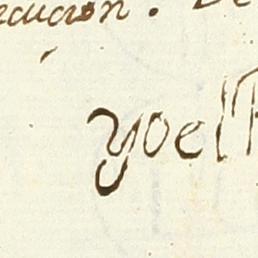 ecucion. De
yo el R